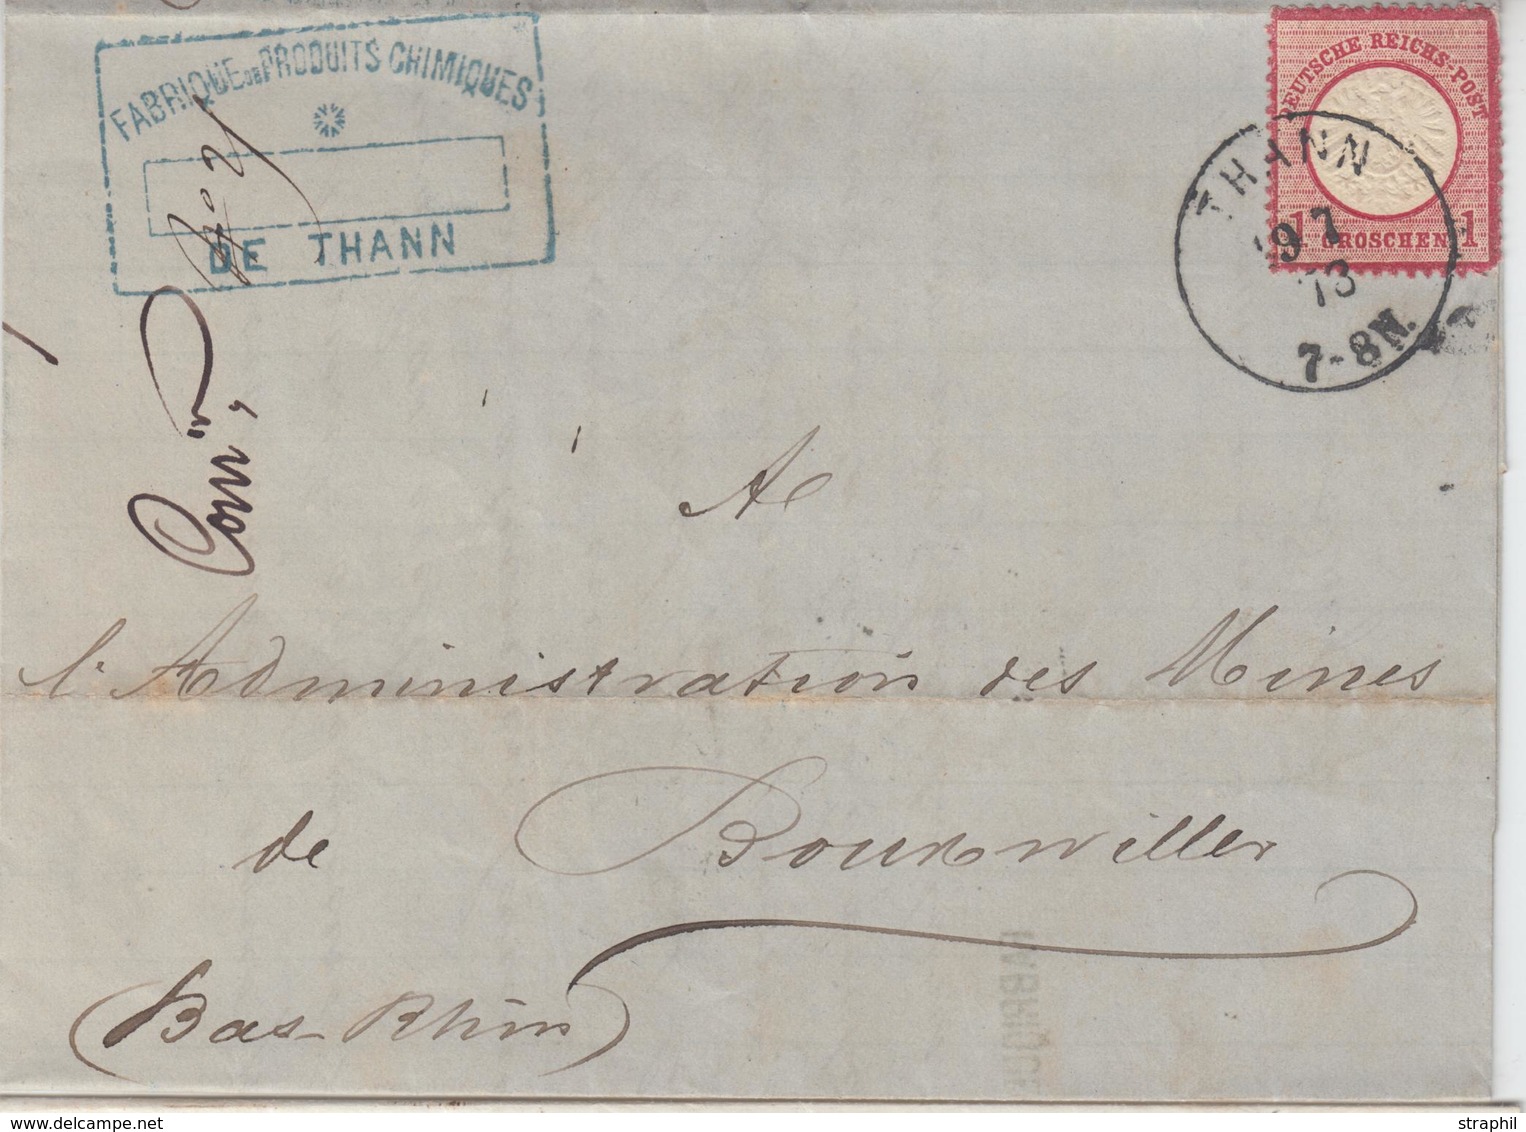 FABRIQUE DE PRODUITS CHIMIQUES
DE THANN
DEUTSCHE REICHS-POST
1 GROSCHEN 1
THANN
19 7
73
7-8N.
A
l'Administration des Mines
de Bouxwiller
(Bas-Rhin)
straphil